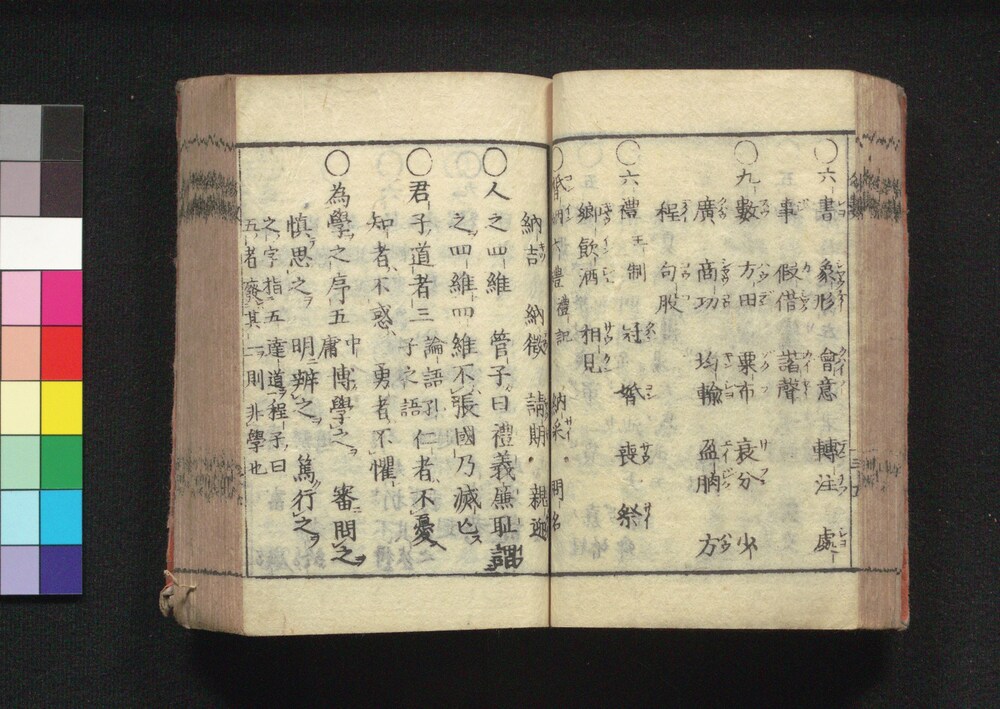 〇六書 象形 會意 轉注 處
事 假借 諧聲
〇九數 方田 粟布 衰分 少
廣 商功 均輸 盈朒 方
程 句股
〇六禮 王制 冠 婚 喪 祭
鄉飲酒 相見
婚姻六禮 禮記 納采 問名
納吉 納徵 請期 親迎
〇人之四維 管子曰禮義廉恥謂
之四維四維不張國乃滅亡
〇君子道者三 論語孔子之語 仁者不憂
知者不惑 勇者不懼
〇為學之序五 中庸 博學之 審問之
慎思之 明辨之 篤行之
之字指五達道程子曰
五者廢其一則非學也